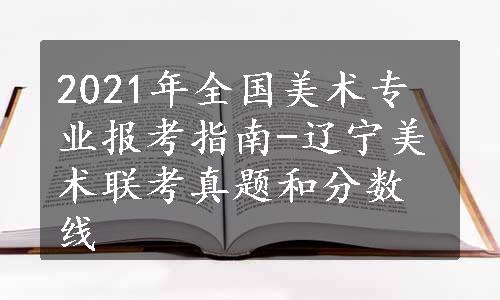 2021年全国美术专
业报考指南-辽宁美
术联考真题和分数
线